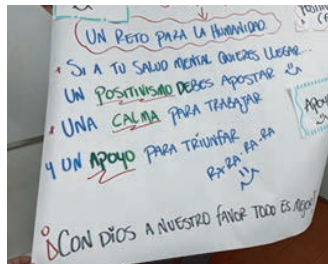 UN RETO PARA LA HUMANIDAD
* SI A TU SALUD MENTAL QUIERES LLEGAR...
UN POSITIVISMO DEBES APOSTAR
* UNA CALMA PARA TRABAJAR
Y UN APOYO PARA TRIUNFAR
RA.RA.RA.RA
¡CON DIOS A NUESTRO FAVOR TODO ES MEJOR!